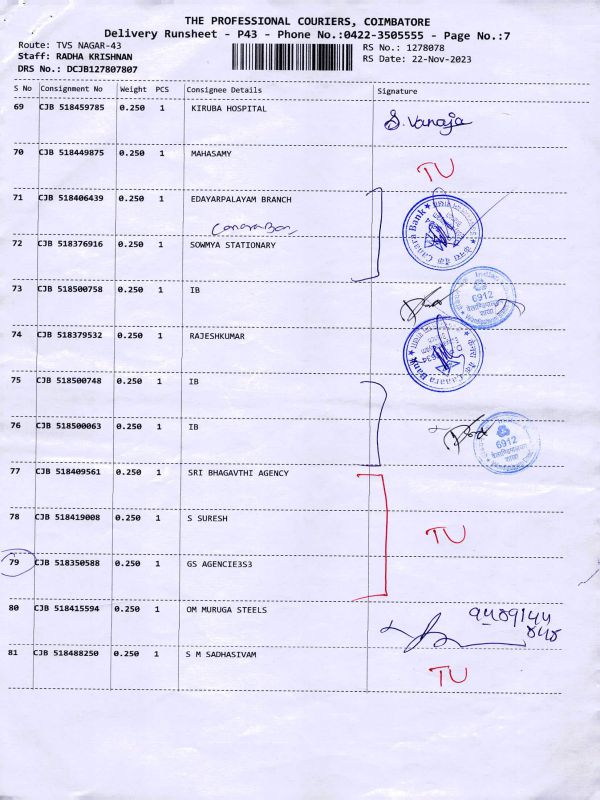 THE PROFESSIONAL COURIERS, COIMBATORE
Delivery Runsheet - P43 - Phone No.:0422-3505555 - Page No.:7
Route: TVS NAGAR-43
RS No.: 1278078
Staff: RADHA KRISHNAN
RS Date: 22-Nov-2023
DRS No.: DCJB127807807
S No Consignment No Weight PCS Consignee Details Signature
69 CJB 518459785 0.250 1 KIRUBA HOSPITAL
S. Vanaja
70 CJB 518449875 0.250 1 MAHASAMY
TU
71 CJB 518406439 0.250 1 EDAYARPALAYAM BRANCH
Canara Bank
72 CJB 518376916 0.250 1 SOWMYA STATIONARY
73 CJB 518500758 0.250 1 IB
6912
74 CJB 518379532 0.250 1 RAJESHKUMAR
Canara Bank
75 CJB 518500748 0.250 1 IB
76 CJB 518500063 0.250 1 IB
6912
77 CJB 518409561 0.250 1 SRI BHAGAVTHI AGENCY
78 CJB 518419008 0.250 1 S SURESH
TU
79 CJB 518350588 0.250 1 GS AGENCIE3S3
80 CJB 518415594 0.250 1 OM MURUGA STEELS
81 CJB 518488250 0.250 1 S M SADHASIVAM
TU